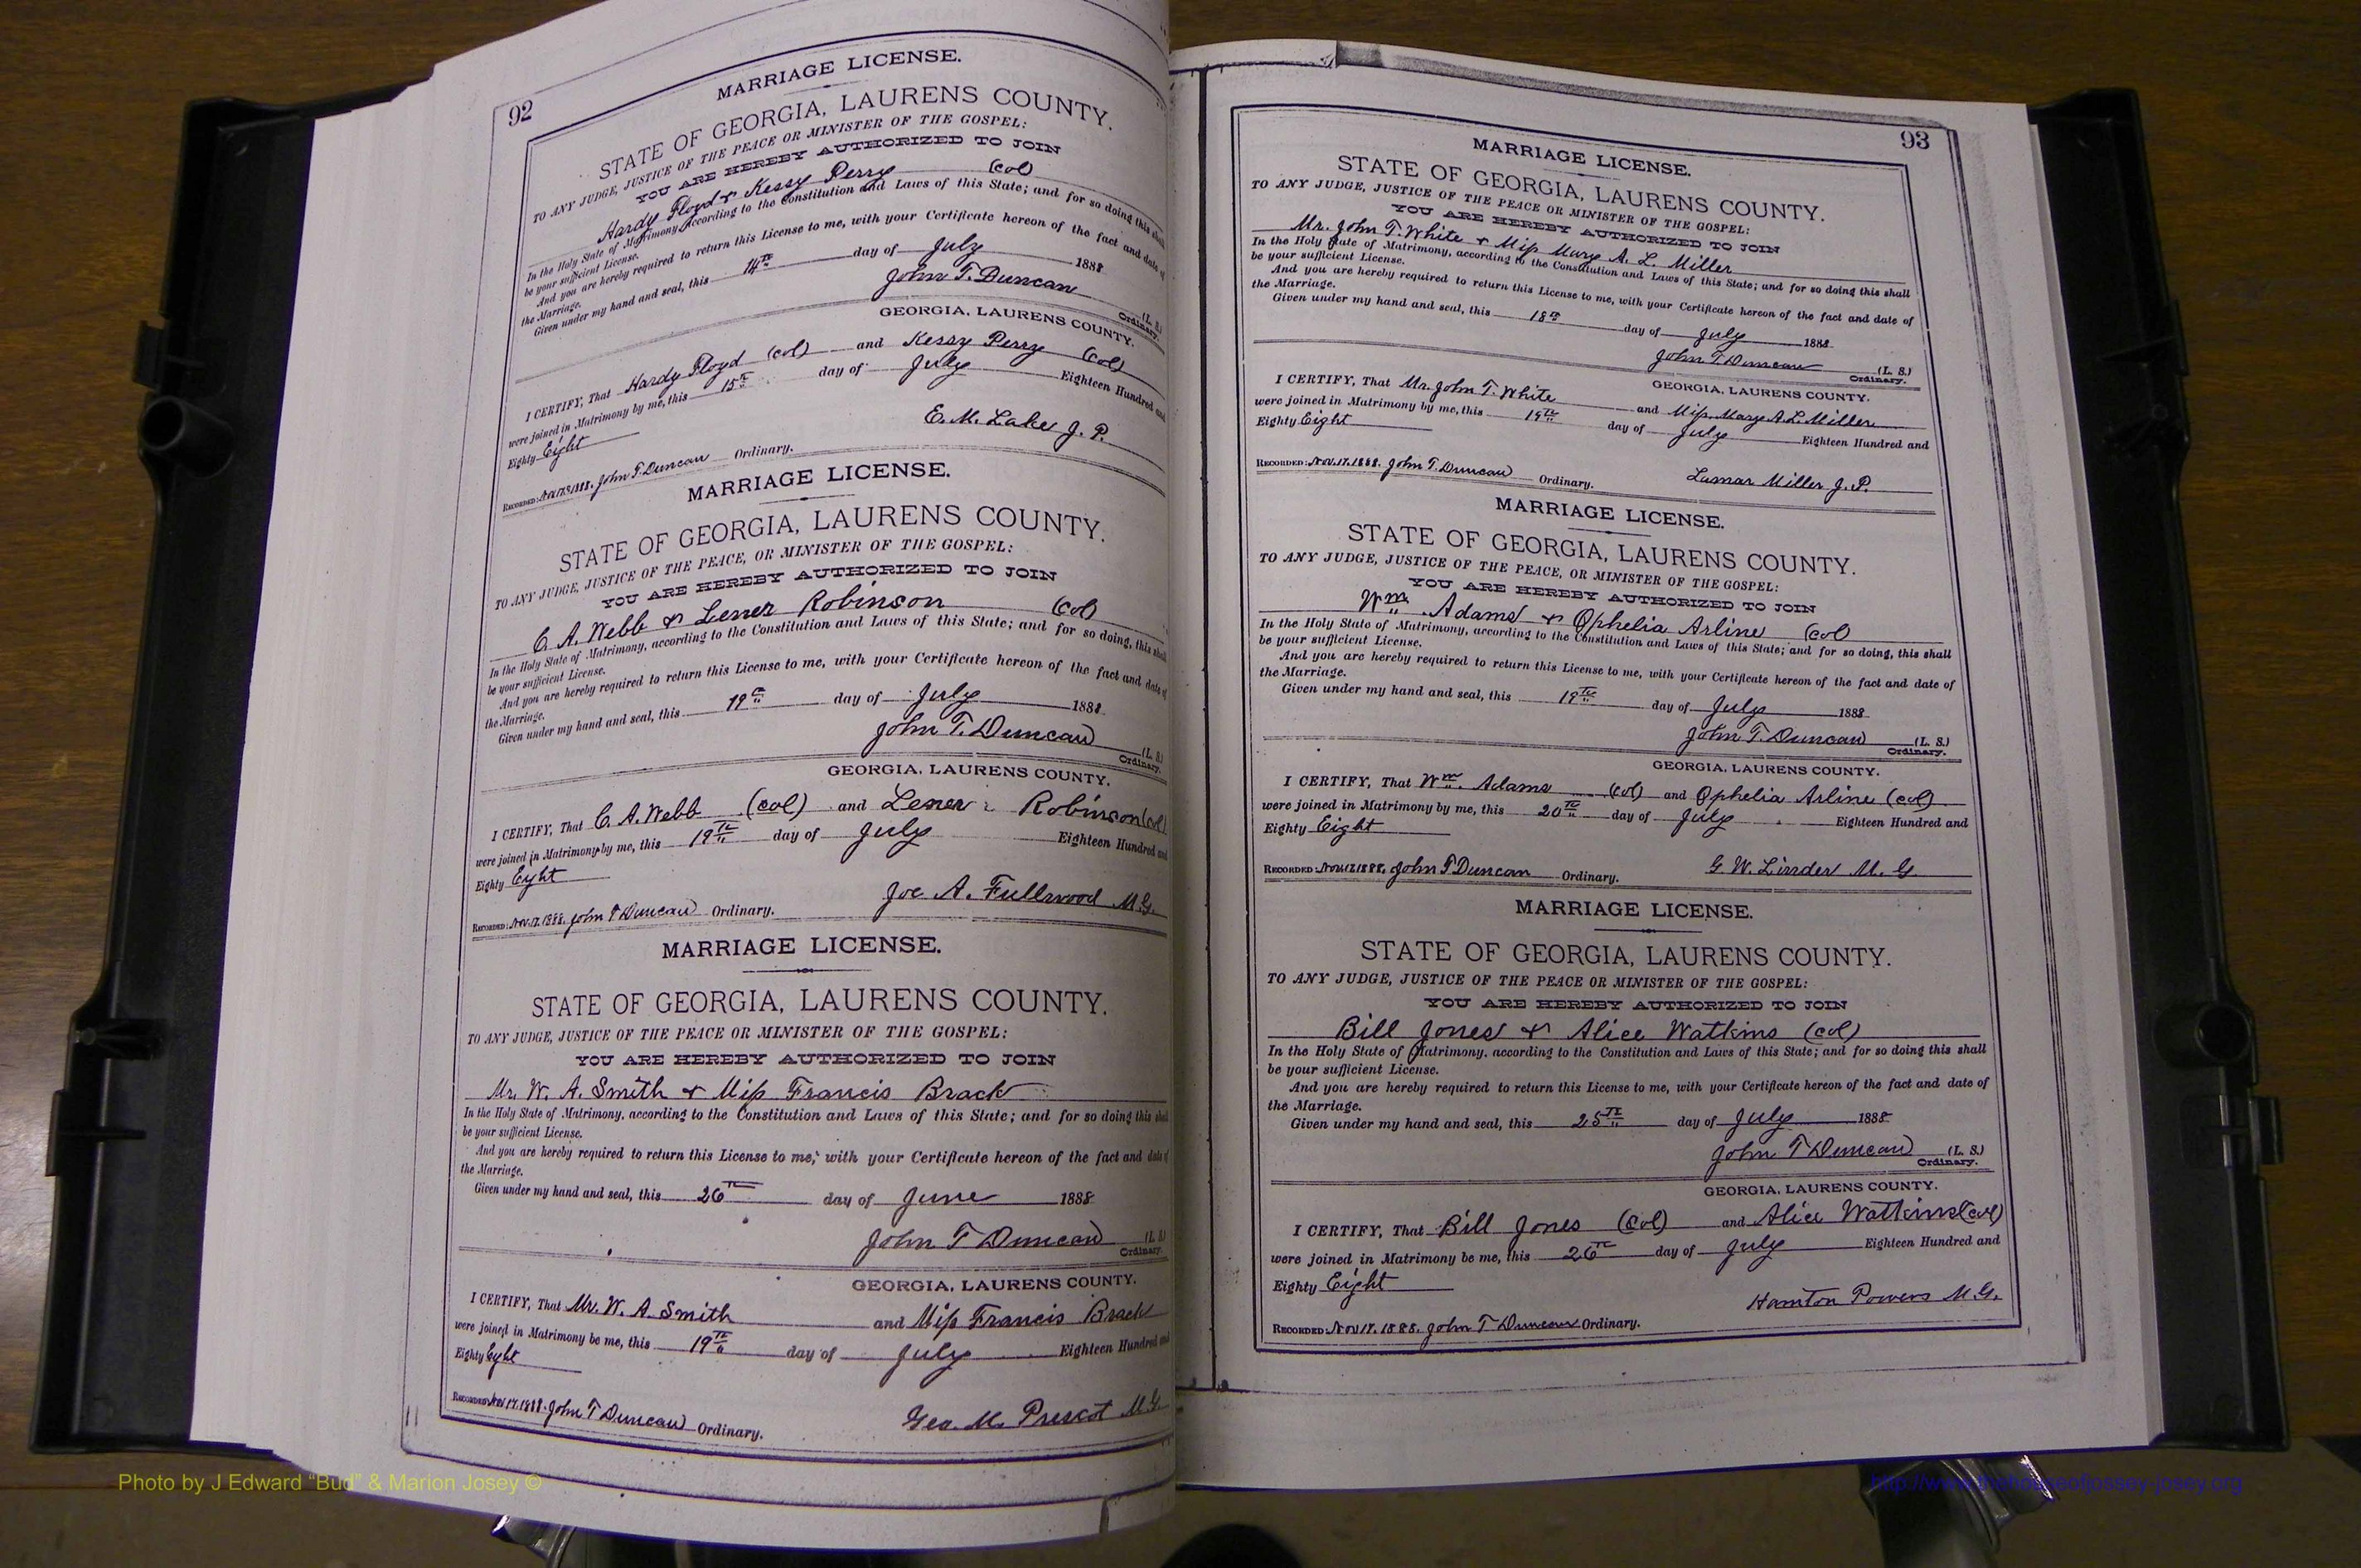 92
MARRIAGE LICENSE.
STATE OF GEORGIA, LAURENS COUNTY.
TO ANY JUDGE, JUSTICE OF THE PEACE OR MINISTER OF THE GOSPEL:
YOU ARE HEREBY AUTHORIZED TO JOIN
Hardy Floyd & Kessy Perry (Col)
In the Holy State of Matrimony according to the Constitution and Laws of this State; and for so doing this shall
be your sufficient License.
And you are hereby required to return this License to me, with your Certificate hereon of the fact and date of
the Marriage.
Given under my hand and seal, this 14th day of July 1888
John T. Duncan (L. S.)
Ordinary.
GEORGIA, LAURENS COUNTY.
I CERTIFY, That Hardy Floyd (Col) and Kessy Perry (Col)
were joined in Matrimony by me, this 15th day of July Eighteen Hundred and
Eighty Eight
E. M. Lake J. P.
RECORDED: 1888. John T. Duncan Ordinary.
MARRIAGE LICENSE.
STATE OF GEORGIA, LAURENS COUNTY.
TO ANY JUDGE, JUSTICE OF THE PEACE, OR MINISTER OF THE GOSPEL:
YOU ARE HEREBY AUTHORIZED TO JOIN
C. A. Webb & Lener Robinson (Col)
In the Holy State of Matrimony, according to the Constitution and Laws of this State; and for so doing, this shall
be your sufficient License.
And you are hereby required to return this License to me, with your Certificate hereon of the fact and date of
the Marriage.
Given under my hand and seal, this 19th day of July 1888
John T. Duncan (L. S.)
Ordinary.
GEORGIA, LAURENS COUNTY.
I CERTIFY, That C. A. Webb (Col) and Lener Robinson (Col)
were joined in Matrimony by me, this 19th day of July Eighteen Hundred and
Eighty Eight
Joe A. Fullwood M.G.
RECORDED: Nov. 17. 1888. John T Duncan Ordinary.
MARRIAGE LICENSE.
STATE OF GEORGIA, LAURENS COUNTY.
TO ANY JUDGE, JUSTICE OF THE PEACE OR MINISTER OF THE GOSPEL:
YOU ARE HEREBY AUTHORIZED TO JOIN
Mr. W. A. Smith & Miss Francis Brack
In the Holy State of Matrimony, according to the Constitution and Laws of this State; and for so doing this shall
be your sufficient License.
And you are hereby required to return this License to me, with your Certificate hereon of the fact and date of
the Marriage.
Given under my hand and seal, this 26th day of June 1888
John T Duncan (L. S.)
Ordinary.
GEORGIA, LAURENS COUNTY.
I CERTIFY, That Mr. W. A. Smith and Miss Francis Brack
were joined in Matrimony be me, this 19th day of July Eighteen Hundred and
Eighty Eight
RECORDED Nov 17. 1888. John T Duncan Ordinary. Geo. M. Prescot M.G.
93
MARRIAGE LICENSE.
STATE OF GEORGIA, LAURENS COUNTY.
TO ANY JUDGE, JUSTICE OF THE PEACE OR MINISTER OF THE GOSPEL:
YOU ARE HEREBY AUTHORIZED TO JOIN
Mr. John T. White & Miss Mary A. L. Miller
In the Holy State of Matrimony, according to the Constitution and Laws of this State; and for so doing this shall
be your sufficient License.
And you are hereby required to return this License to me, with your Certificate hereon of the fact and date of
the Marriage.
Given under my hand and seal, this 18th day of July 1888
John T. Duncan (L. S.)
Ordinary.
GEORGIA, LAURENS COUNTY.
I CERTIFY, That Mr. John T. White and Miss Mary A. L. Miller
were joined in Matrimony by me, this 19th day of July Eighteen Hundred and
Eighty Eight
RECORDED: Nov. 17. 1888. John T. Duncan Ordinary. Lamar Miller J. P.
MARRIAGE LICENSE.
STATE OF GEORGIA, LAURENS COUNTY.
TO ANY JUDGE, JUSTICE OF THE PEACE, OR MINISTER OF THE GOSPEL:
YOU ARE HEREBY AUTHORIZED TO JOIN
Wm. Adams & Ophelia Arline (Col)
In the Holy State of Matrimony, according to the Constitution and Laws of this State; and for so doing, this shall
be your sufficient License.
And you are hereby required to return this License to me, with your Certificate hereon of the fact and date of
the Marriage.
Given under my hand and seal, this 19th day of July 1888
John T. Duncan (L. S.)
Ordinary.
GEORGIA, LAURENS COUNTY.
I CERTIFY, That Wm. Adams (Col) and Ophelia Arline (Col)
were joined in Matrimony by me, this 20th day of July Eighteen Hundred and
Eighty Eight
RECORDED: Nov. 17. 1888. John T Duncan Ordinary. G W. Linder M. G.
MARRIAGE LICENSE.
STATE OF GEORGIA, LAURENS COUNTY.
TO ANY JUDGE, JUSTICE OF THE PEACE OR MINISTER OF THE GOSPEL:
YOU ARE HEREBY AUTHORIZED TO JOIN
Bill Jones & Alice Watkins (Col)
In the Holy State of Matrimony, according to the Constitution and Laws of this State; and for so doing this shall
be your sufficient License.
And you are hereby required to return this License to me, with your Certificate hereon of the fact and date of
the Marriage.
Given under my hand and seal, this 25th day of July 1888
John T Duncan (L. S.)
Ordinary.
GEORGIA, LAURENS COUNTY.
I CERTIFY, That Bill Jones (Col) and Alice Watkins (Col)
were joined in Matrimony be me, this 26th day of July Eighteen Hundred and
Eighty Eight
Hamton Powers M.G.
RECORDED: Nov 17. 1888. John T Duncan Ordinary.
Photo by J Edward “Bud” & Marion Josey ©
http://www.thehouseofjossey-josey.org